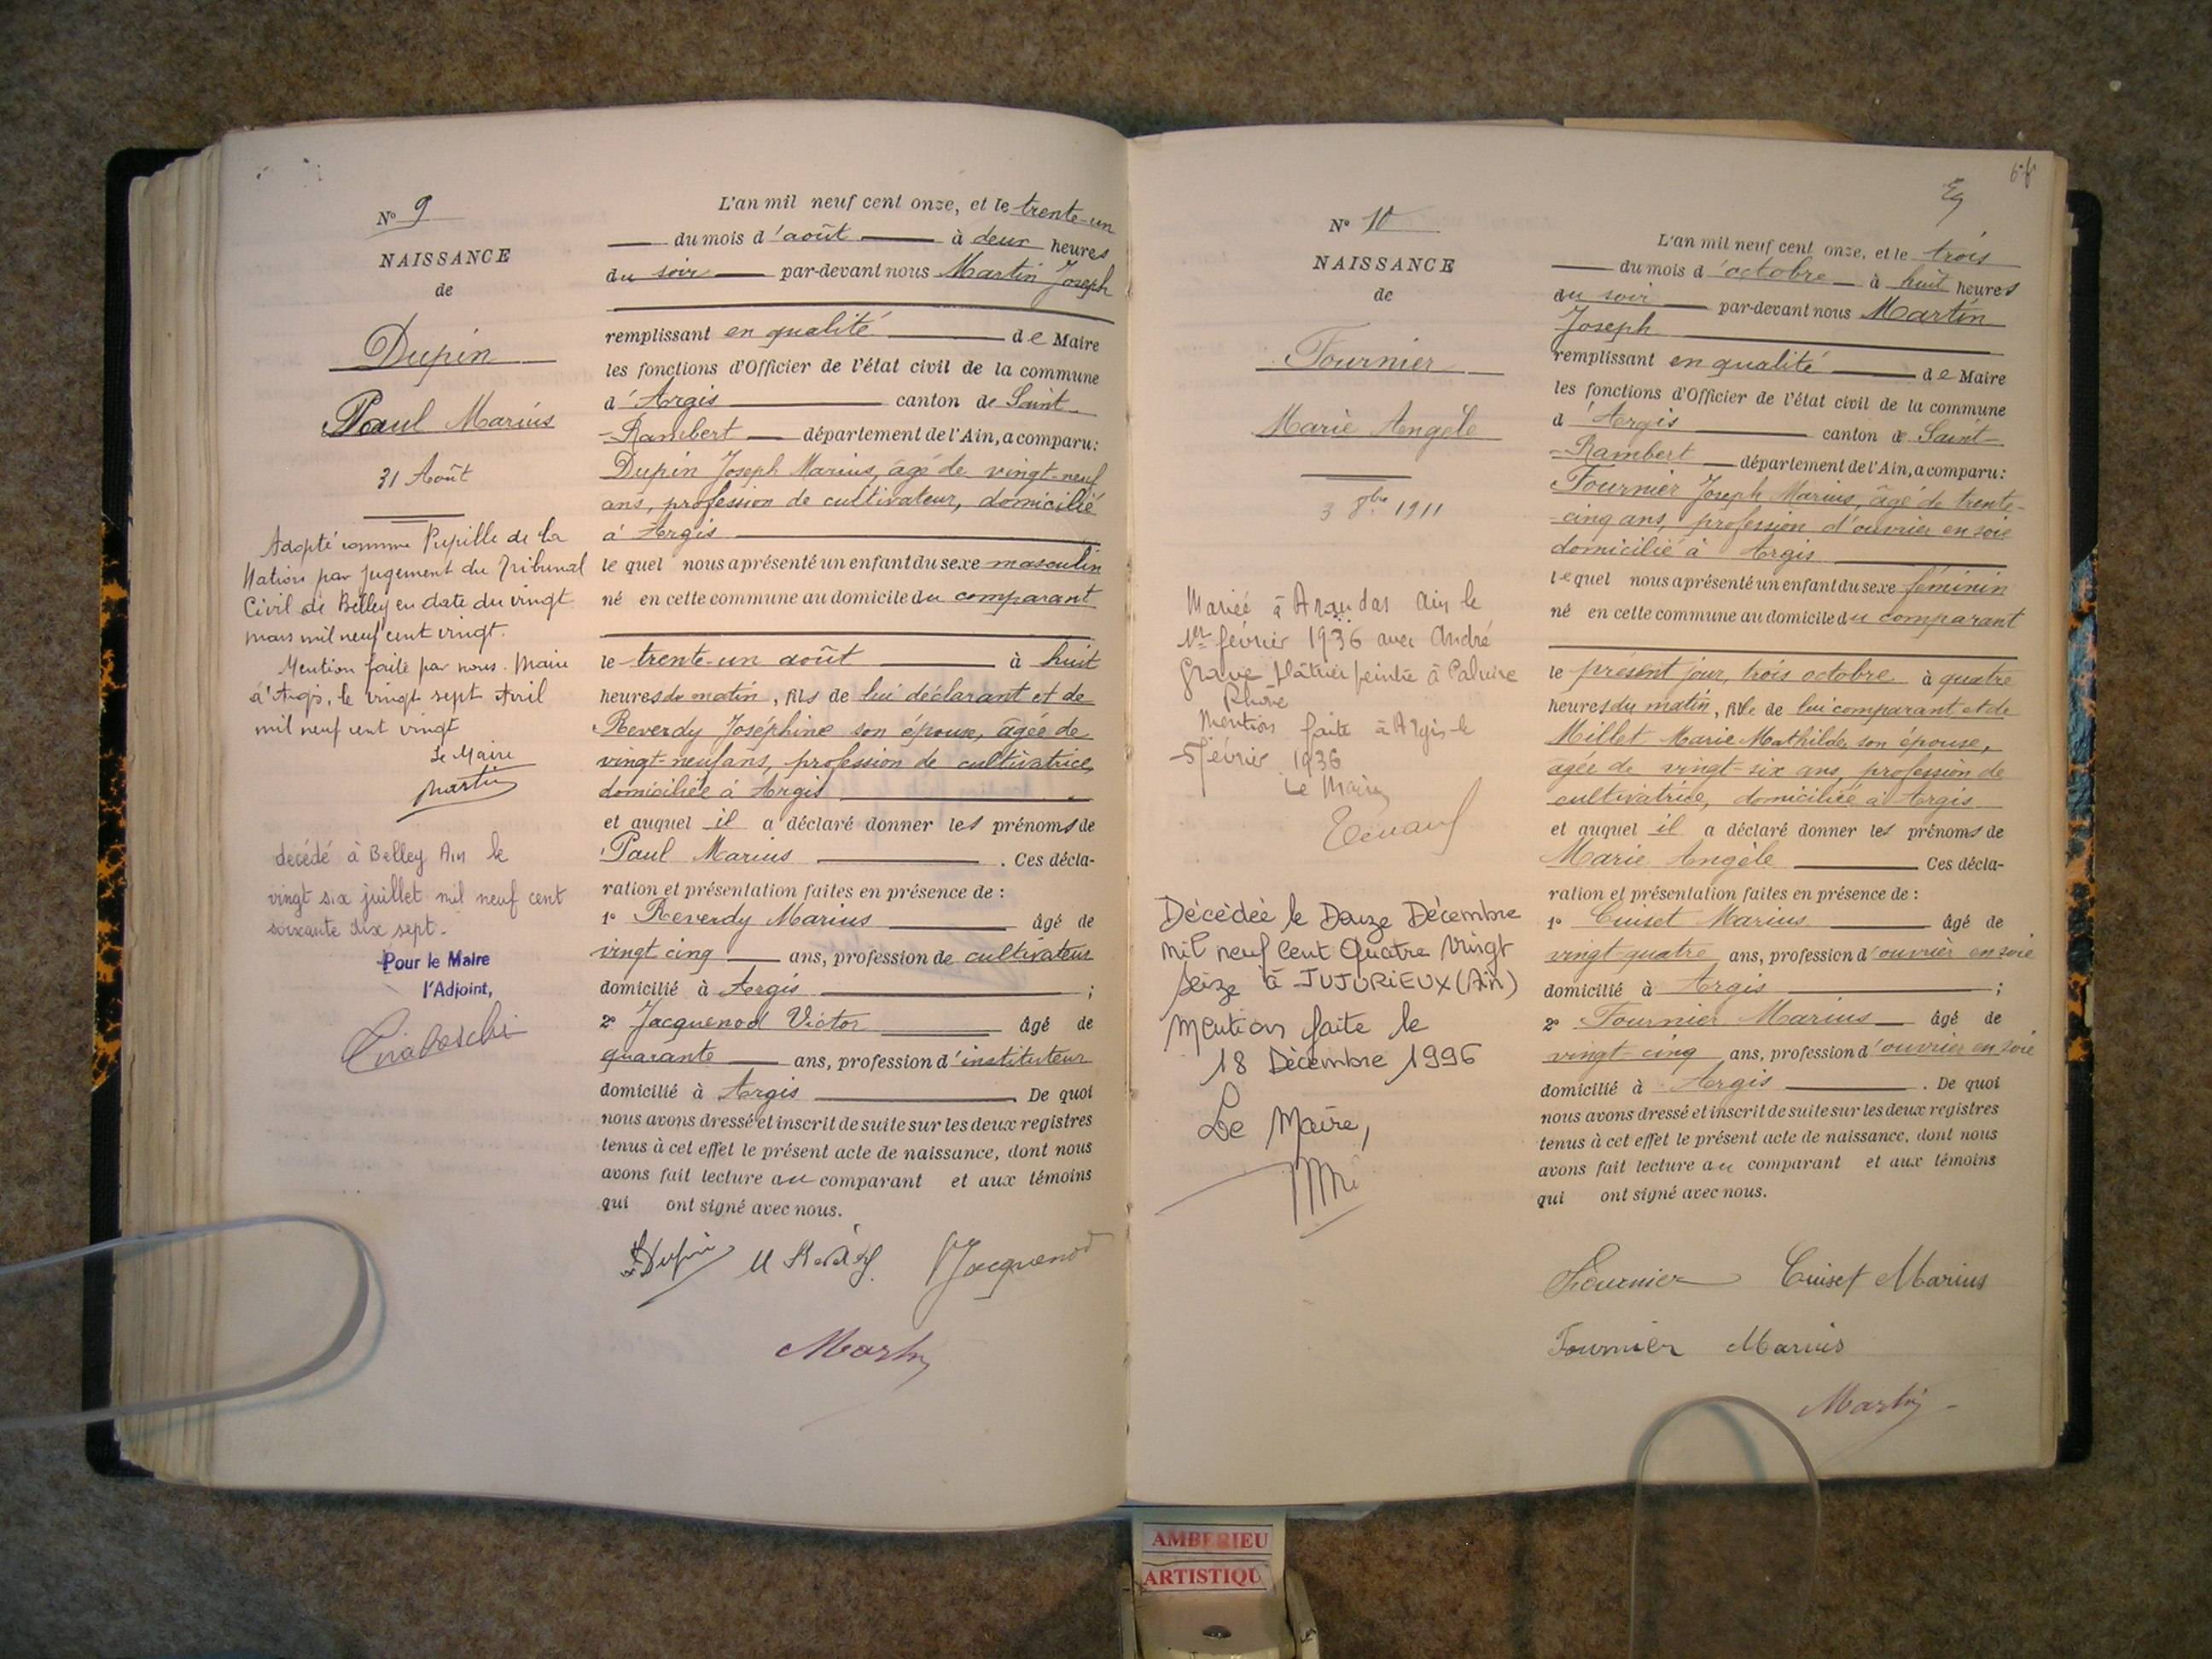 N° 9
NAISSANCE
de
Dupin
Paul Marius
31 Août
Adopté comme Pupille de la
Nation par jugement du Tribunal
Civil de Belley en date du vingt
mars mil neuf cent vingt.
Mention faite par nous. Maire
d'Argis, le vingt sept Avril
mil neuf cent vingt
Le Maire
Martin
decédé à Belley Ain le
vingt six juillet mil neuf cent
soixante dix sept.
Pour le Maire
l'Adjoint,
L'an mil neuf cent onze, et le trente-un
du mois d'août à deux heures
du soir par-devant nous Martin Joseph
remplissant en qualité de Maire
les fonctions d'Officier de l'état civil de la commune
d'Argis canton de Saint
-Rambert département de l'Ain, a comparu:
Dupin Joseph Marius, âgé de vingt-neuf
ans, profession de cultivateur, domicilié
à Argis
le quel nous a présenté un enfant du sexe masculin
né en cette commune au domicile du comparant
le trente-un août à huit
heures du matin, fils de lui déclarant et de
Reverdy Joséphine son épouse, âgée de
vingt-neuf ans, profession de cultivatrice,
domiciliée à Argis
et auquel il a déclaré donner les prénoms de
Paul Marius . Ces décla-
ration et présentation faites en présence de :
1° Reverdy Marius âgé de
vingt cinq ans, profession de cultivateur
domicilié à Argis ;
2° Jacquenod Victor âgé de
quarante ans, profession d'instituteur
domicilié à Argis . De quoi
nous avons dressé et inscrit de suite sur les deux registres
tenus à cet effet le présent acte de naissance, dont nous
avons fait lecture au comparant et aux témoins
qui ont signé avec nous.
Dupin Jacquenod
Martin
N° 10
NAISSANCE
de
Fournier
Marie Angèle
3 8bre 1911
Mariée à Arandas Ain le
1er février 1936 avec André
Grave plâtrier peintre à Caluire
Rhône
Mention faite à Argis le
5 février 1936
Le Maire
Décédée le Douze Décembre
mil neuf Cent Quatre Vingt
Seize à JUJURIEUX (Ain)
Mention faite le
18 Décembre 1996
Le Maire,
L'an mil neuf cent onze, et le trois
du mois d'octobre à huit heures
du soir par-devant nous Martin
Joseph
remplissant en qualité de Maire
les fonctions d'Officier de l'état civil de la commune
d'Argis canton de Saint-
-Rambert département de l'Ain, a comparu:
Fournier Joseph Marius, âgé de trente-
-cinq ans, profession d'ouvrier en soie
domicilié à Argis
lequel nous a présenté un enfant du sexe féminin
né en cette commune au domicile du comparant
le présent jour, trois octobre à quatre
heures du matin, fille de lui comparant et de
Millet Marie Mathilde, son épouse,
agée de vingt-six ans, profession de
cultivatrice, domiciliée à Argis
et auquel il a déclaré donner les prénoms de
Marie Angèle Ces décla-
ration et présentation faites en présence de :
1° Cuiset Marius âgé de
vingt-quatre ans, profession d'ouvrier en soie
domicilié à Argis ;
2° Fournier Marius âgé de
vingt-cinq ans, profession d'ouvrier en soie
domicilié à Argis . De quoi
nous avons dressé et inscrit de suite sur les deux registres
tenus à cet effet le présent acte de naissance, dont nous
avons fait lecture au comparant et aux témoins
qui ont signé avec nous.
Fournier Cuiset Marius
Fournier Marius
Martin
AMBERIEU
ARTISTIQU